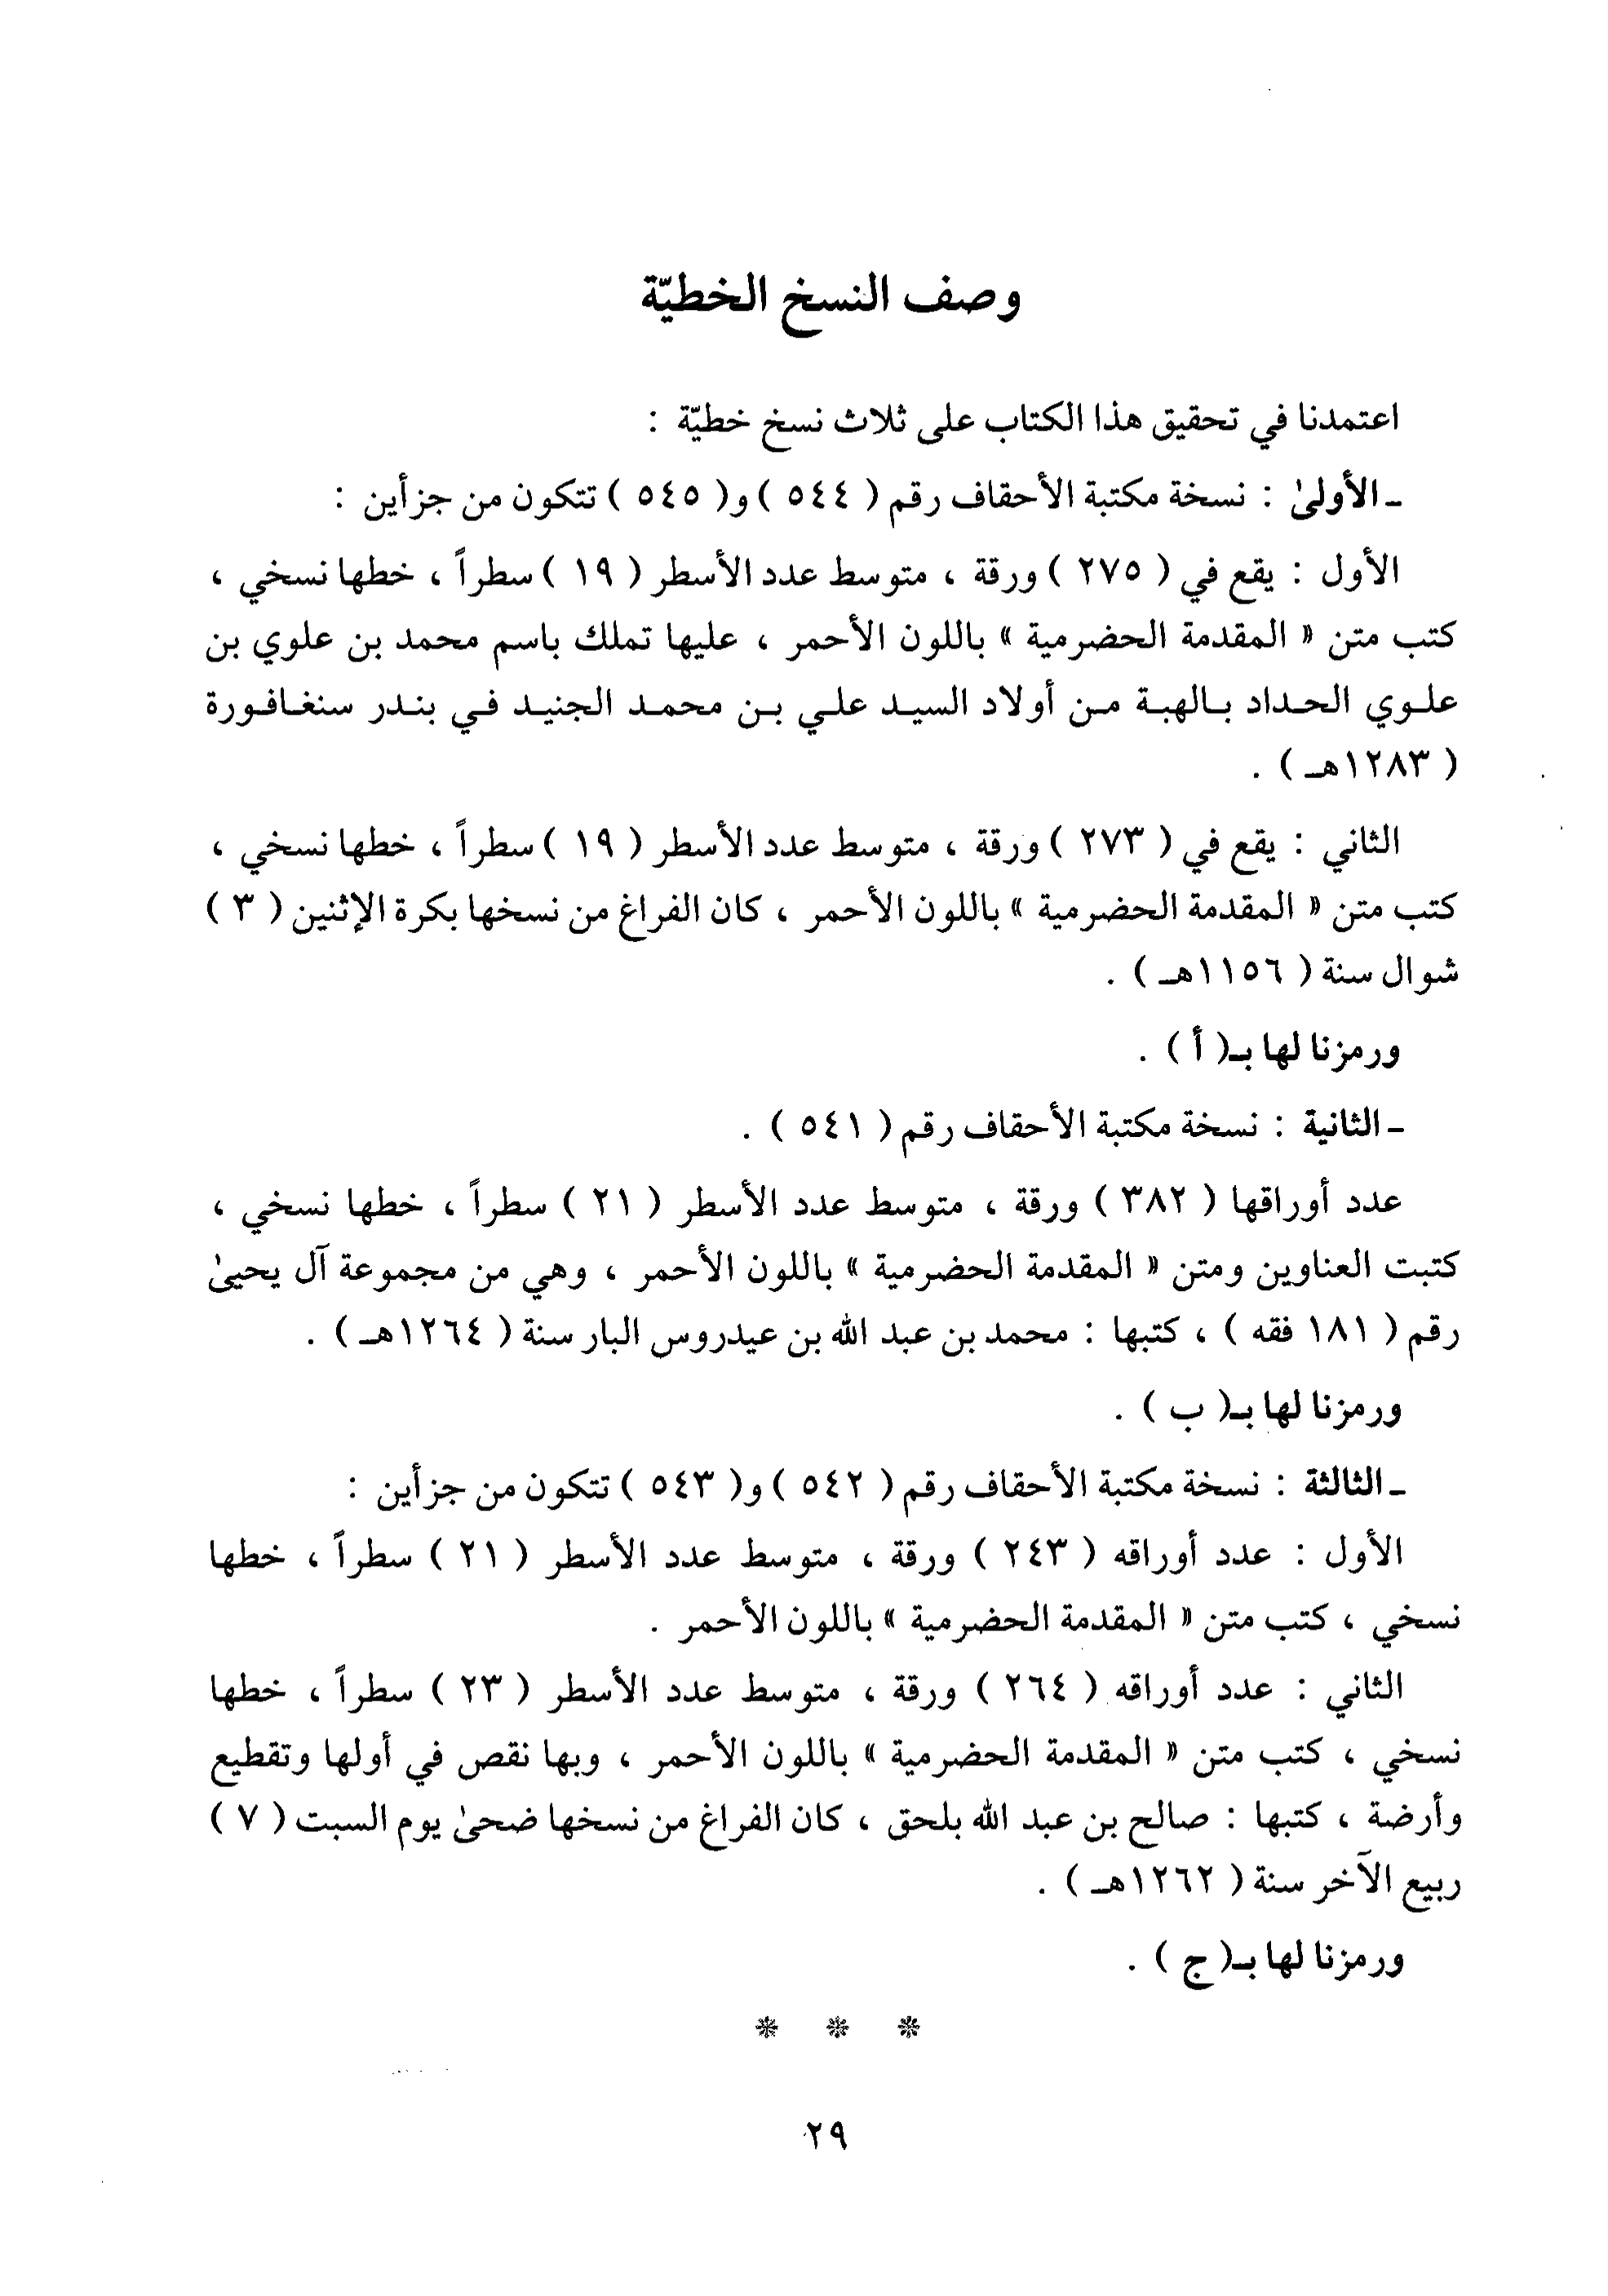 وصف النسخ الخطيّة
اعتمدنا في تحقيق هذا الكتاب على ثلاث نسخ خطيّة :
ـ الأولىٰ : نسخة مكتبة الأحقاف رقم ( ٥٤٤ ) و( ٥٤٥ ) تتكون من جزأين :
الأول : يقع في ( ٢٧٥ ) ورقة ، متوسط عدد الأسطر ( ١٩ ) سطراً ، خطها نسخي ،
كتب متن « المقدمة الحضرمية » باللون الأحمر ، عليها تملك باسم محمد بن علوي بن
علوي الحداد بالهبة من أولاد السيد علي بن محمد الجنيد في بندر سنغافورة
( ١٢٨٣هـ ) .
الثاني : يقع في ( ٢٧٣ ) ورقة ، متوسط عدد الأسطر ( ١٩ ) سطراً ، خطها نسخي ،
كتب متن « المقدمة الحضرمية » باللون الأحمر ، كان الفراغ من نسخها بكرة الإثنين ( ٣ )
شوال سنة ( ١١٥٦هـ ) .
ورمزنا لها بـ( أ ) .
ـ الثانية : نسخة مكتبة الأحقاف رقم ( ٥٤١ ) .
عدد أوراقها ( ٣٨٢ ) ورقة ، متوسط عدد الأسطر ( ٢١ ) سطراً ، خطها نسخي ،
كتبت العناوين ومتن « المقدمة الحضرمية » باللون الأحمر ، وهي من مجموعة آل يحيىٰ
رقم ( ١٨١ فقه ) ، كتبها : محمد بن عبد الله بن عيدروس البار سنة ( ١٢٦٤هـ ) .
ورمزنا لها بـ( ب ) .
ـ الثالثة : نسخة مكتبة الأحقاف رقم ( ٥٤٢ ) و( ٥٤٣ ) تتكون من جزأين :
الأول : عدد أوراقه ( ٢٤٣ ) ورقة ، متوسط عدد الأسطر ( ٢١ ) سطراً ، خطها
نسخي ، كتب متن « المقدمة الحضرمية » باللون الأحمر .
الثاني : عدد أوراقه ( ٢٦٤ ) ورقة ، متوسط عدد الأسطر ( ٢٣ ) سطراً ، خطها
نسخي ، كتب متن « المقدمة الحضرمية » باللون الأحمر ، وبها نقص في أولها وتقطيع
وأرضة ، كتبها : صالح بن عبد الله بلحق ، كان الفراغ من نسخها ضحىٰ يوم السبت ( ٧ )
ربيع الآخر سنة ( ١٢٦٢هـ ) .
ورمزنا لها بـ( ج ) .
* * *
٢٩